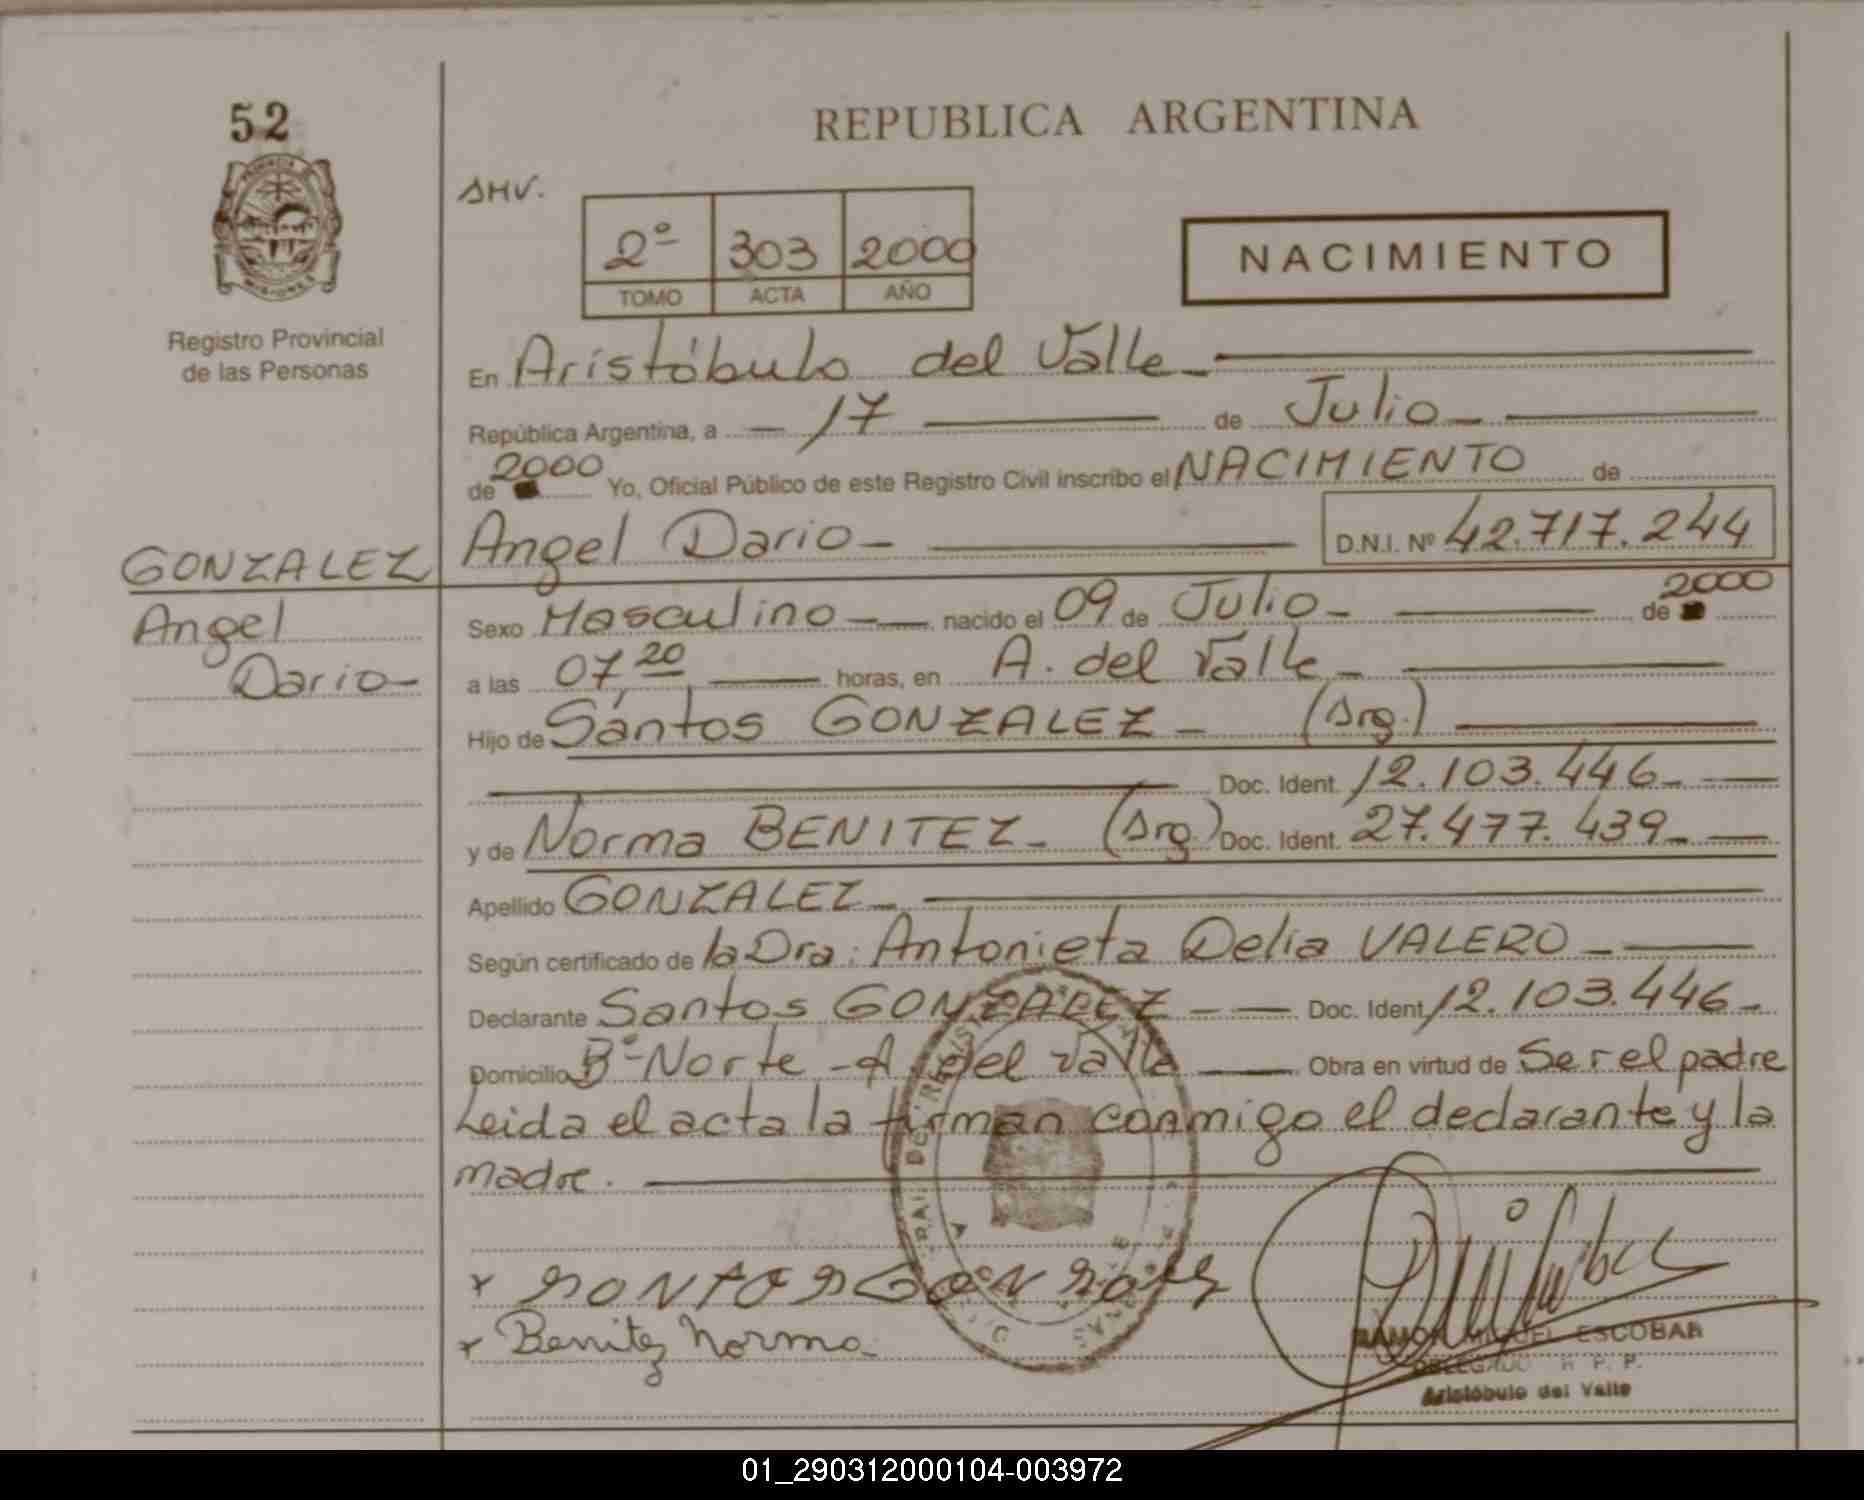 52
REPUBLICA ARGENTINA
SHV.
2º 303 2000
TOMO ACTA AÑO
NACIMIENTO
Registro Provincial
de las Personas
En Aristóbulo del Valle
República Argentina, a 17 de Julio
de 2000 Yo, Oficial Público de este Registro Civil inscribo el NACIMIENTO de
Angel Dario D.N.I. Nº 42.717.244
GONZALEZ
Angel
Dario
Sexo Masculino nacido el 09 de Julio de 2000
a las 07 20 horas, en A. del Valle
Hijo de Santos GONZALEZ (Arg.)
Doc. Ident. 12.103.446
y de Norma BENITEZ (Arg.) Doc. Ident. 27.477.439
Apellido GONZALEZ
Según certificado de la Dra: Antonieta Delia VALERO
Declarante Santos GONZALEZ Doc. Ident. 12.103.446
Domicilio Bº Norte - A del Valle Obra en virtud de Ser el padre
Leida el acta la firman conmigo el declarante y la
madre.
Benitez Norma
RAMON MIGUEL ESCOBAR
DELEGADO R. P. P.
Aristóbulo del Valle
01_290312000104-003972